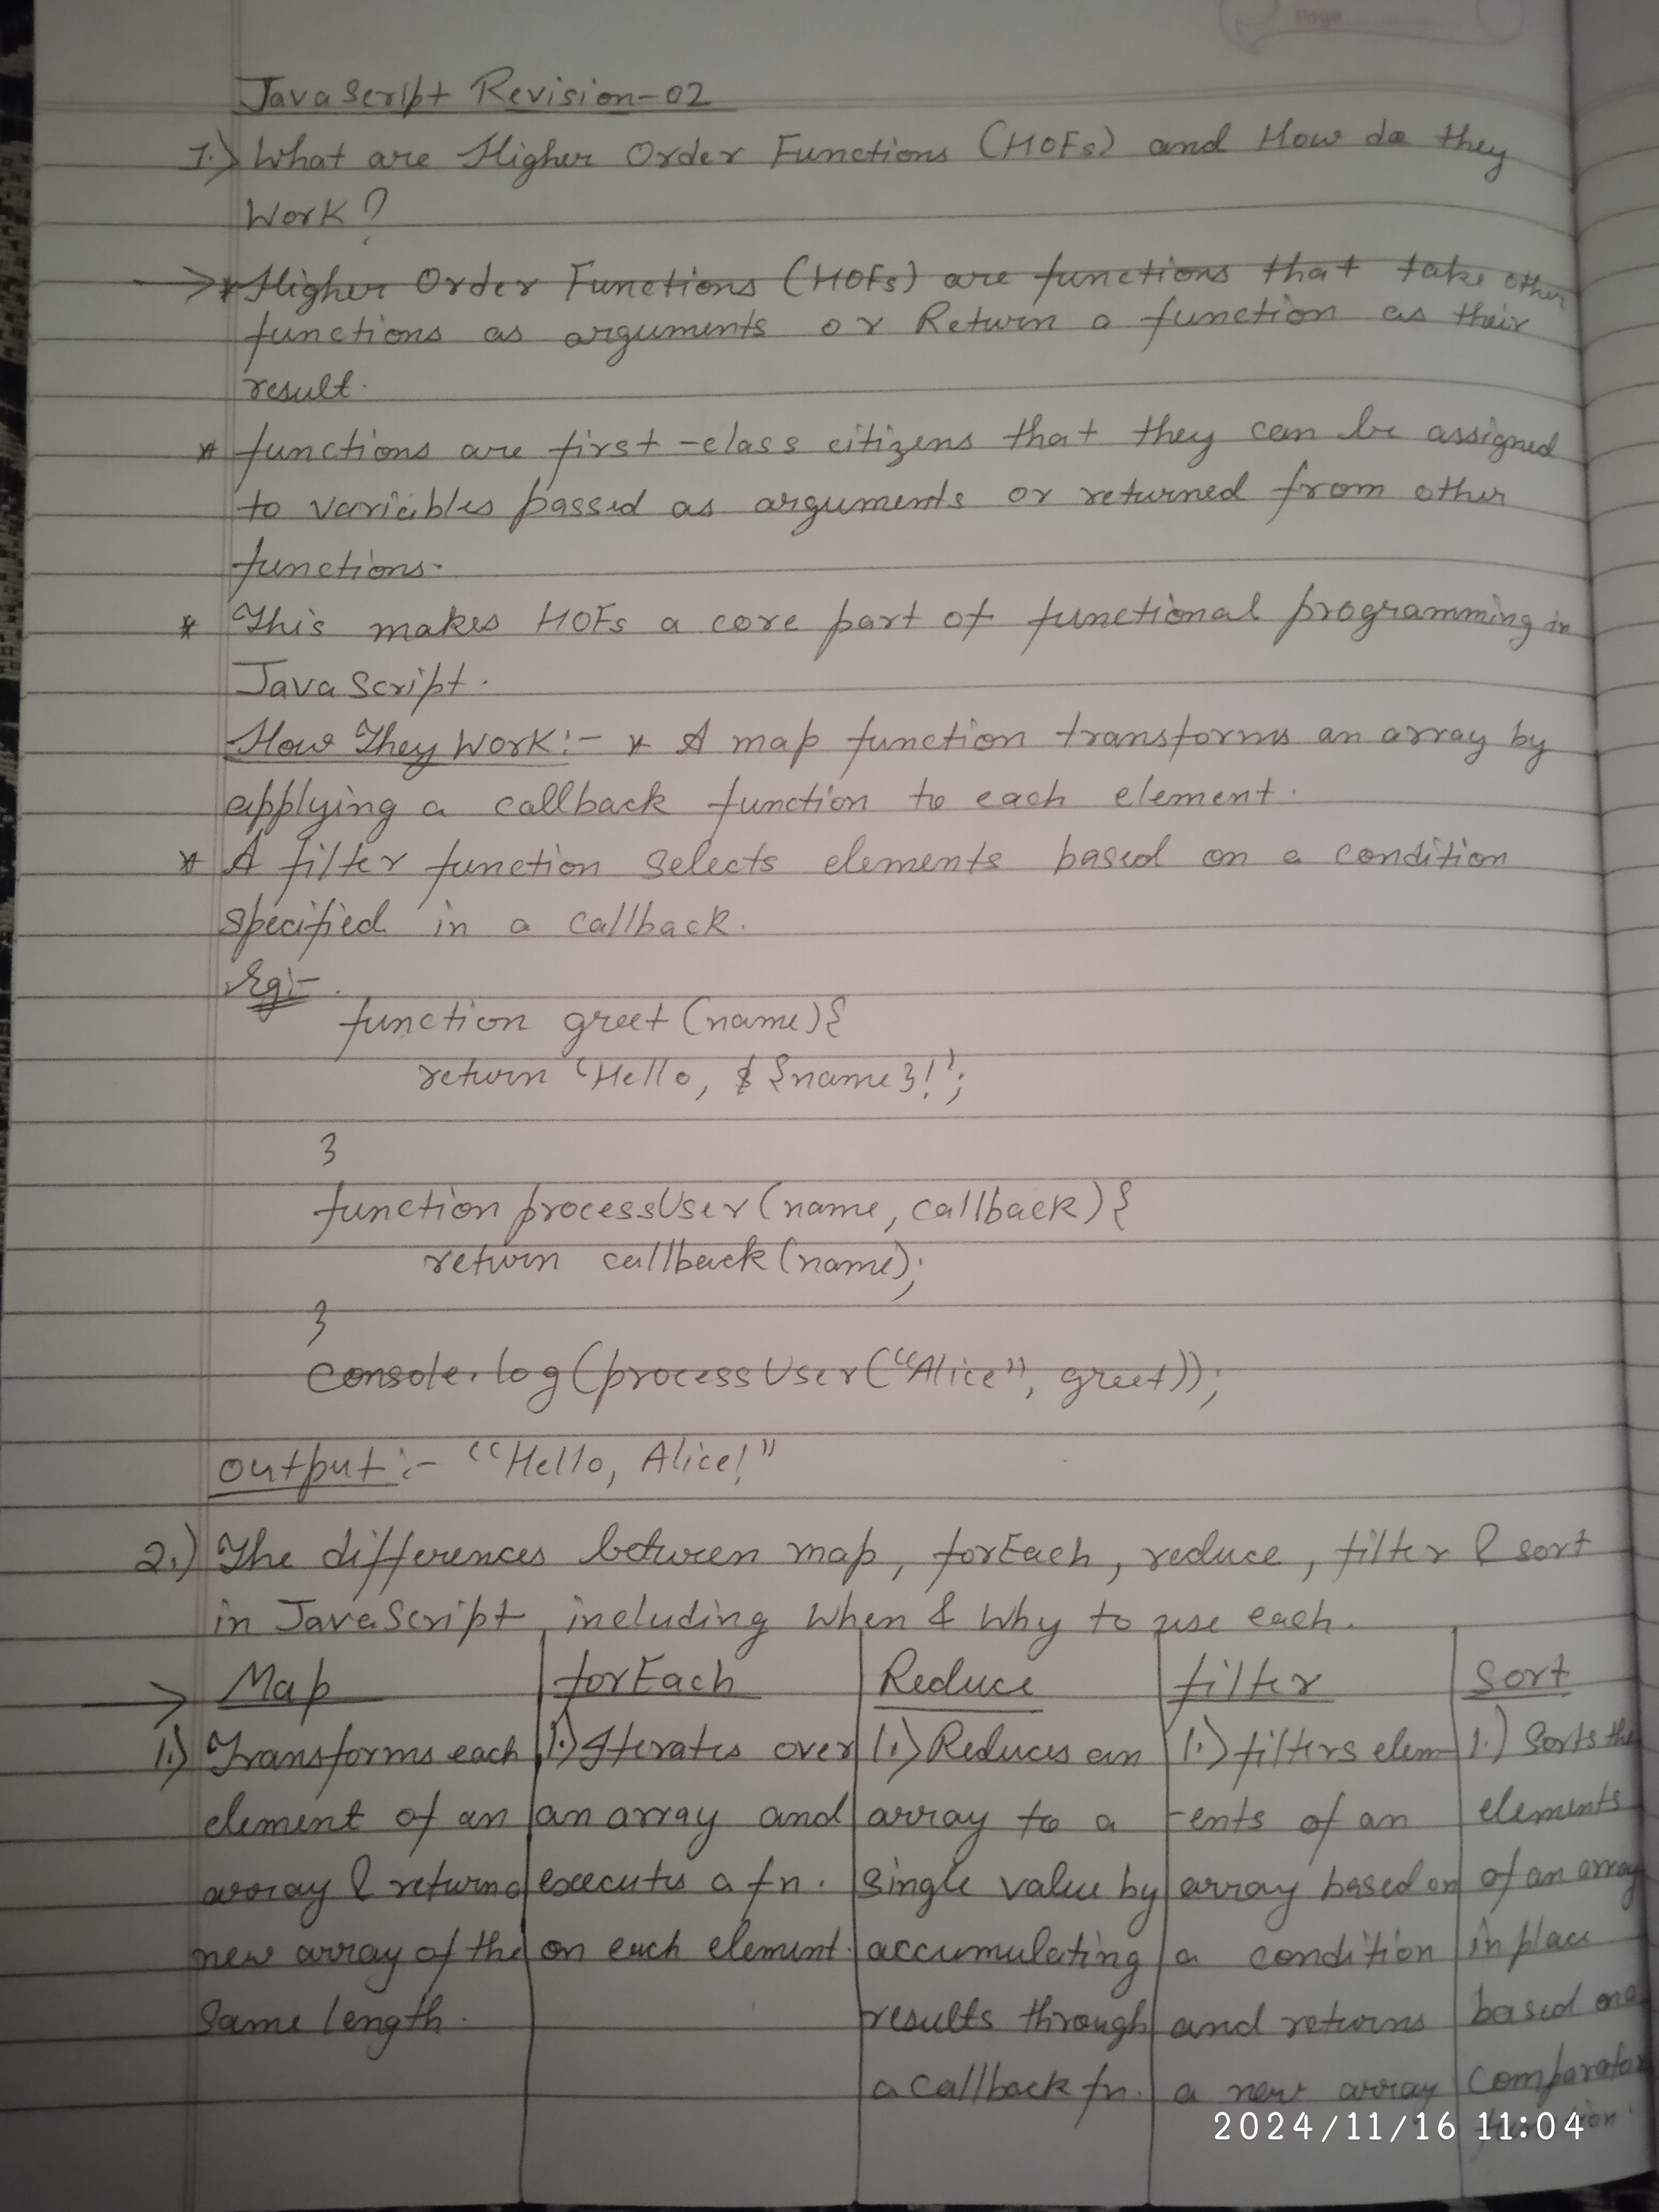 Page
JavaScript Revision-02
1.) What are Higher Order Functions (HOFs) and How do they
Work?
→ * Higher Order Functions (HOFs) are functions that take other
functions as arguments or Return a function as their
result.
* functions are first-class citizens that they can be assigned
to variables passed as arguments or returned from other
functions.
* This makes HOFs a core part of functional programming in
JavaScript.
How They Work:- * A map function transforms an array by
applying a callback function to each element.
* A filter function selects elements based on a condition
specified in a callback.
Eg:-
function greet (name){
return 'Hello, ${name}!';
}
function processUser (name, callback){
return callback (name);
}
console.log(processUser("Alice", greet));
output:- "Hello, Alice!"
2.) The differences between map, forEach, reduce, filter & sort
in JavaScript, including When & Why to use each.
→ Map forEach Reduce filter Sort
1.) Transforms each 1.) Iterates over 1.) Reduces an 1.) filters elem- 1.) Sorts the
element of an an array and array to a -ents of an elements
array & returns a executes a fn. single value by array based on of an array
new array of the on each element. accumulating a condition in place
same length. results through and returns based on a
a callback fn. a new array Comparator
function.
2024/11/16 11:04